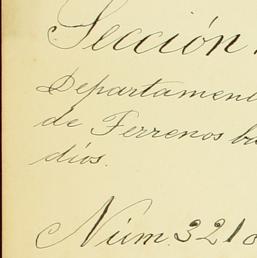 Sección
Departamen
de Terrenos b
díos.
Núm. 321